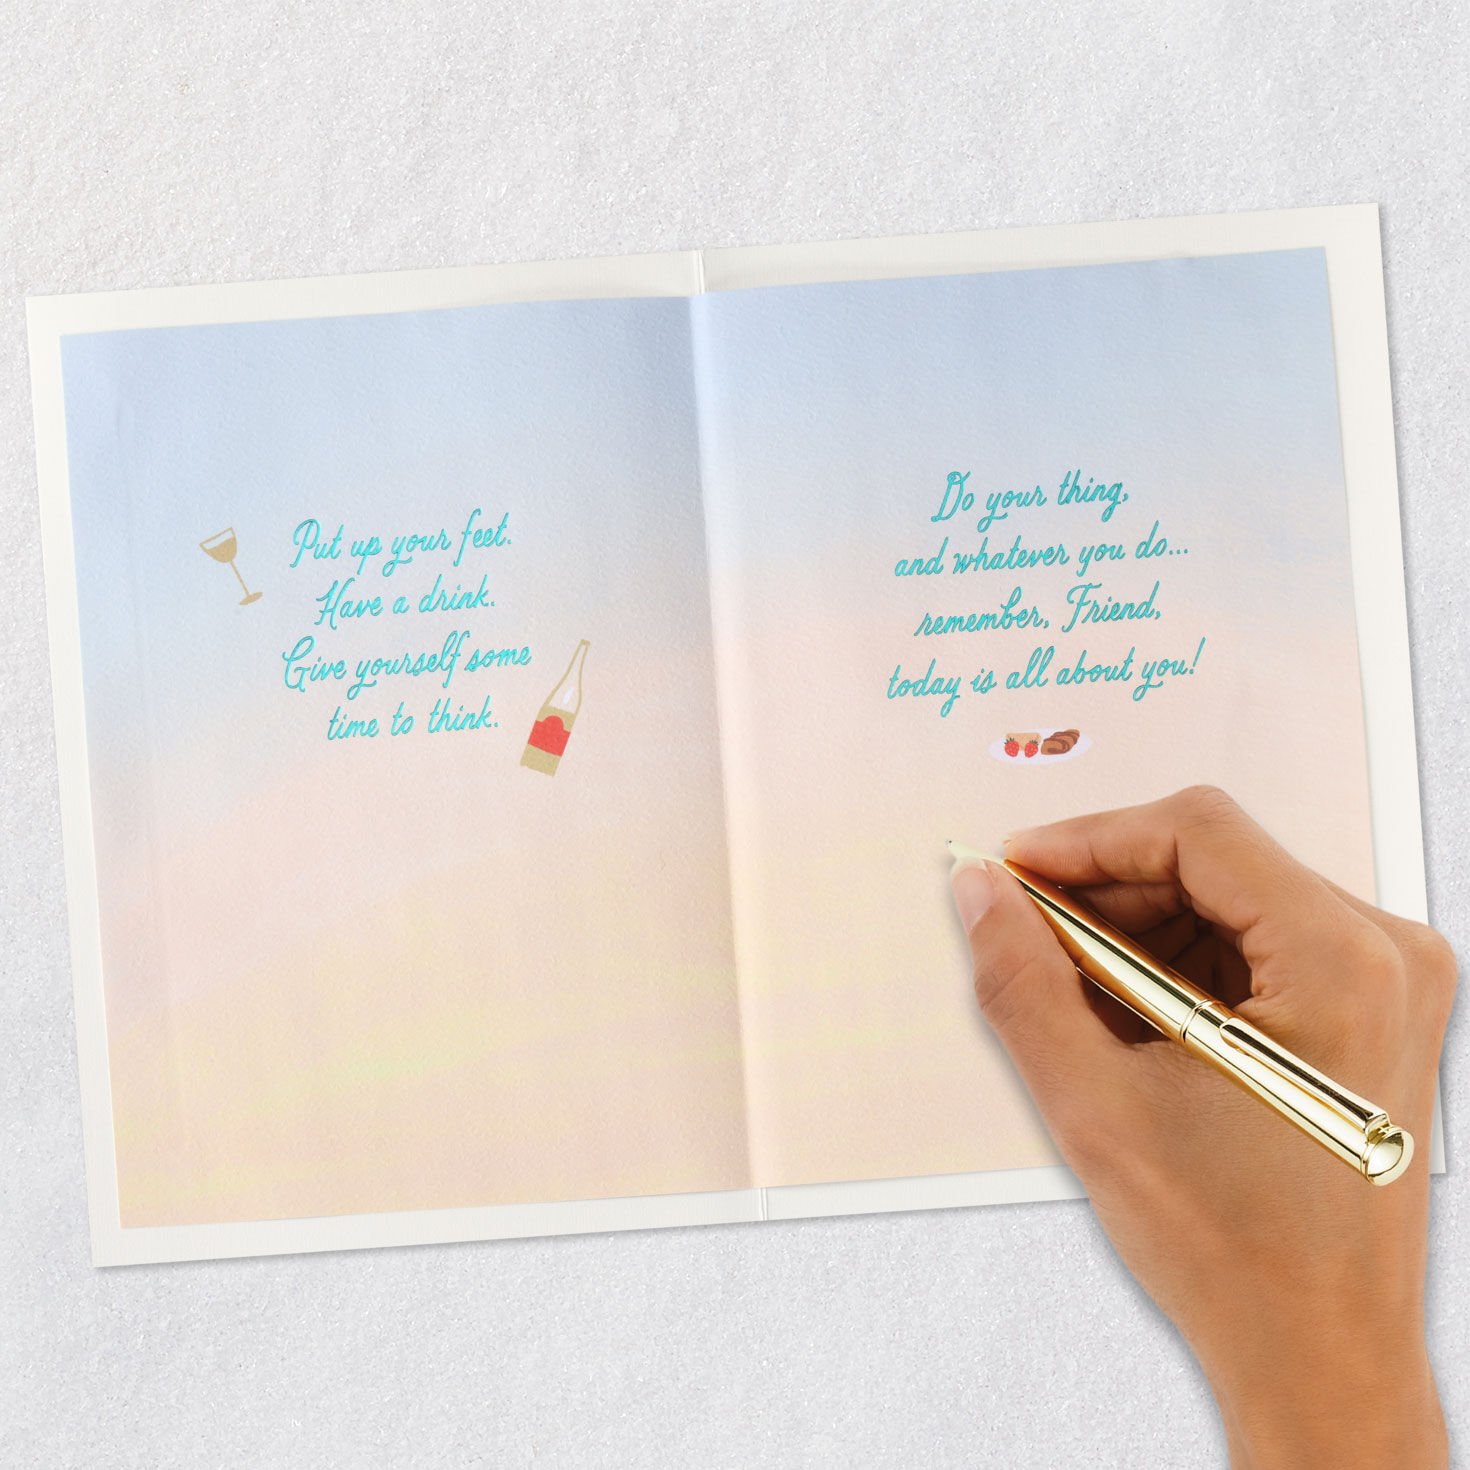 Put up your feet.
Have a drink.
Give yourself some
time to think.
Do your thing,
and whatever you do...
remember, Friend,
today is all about you!